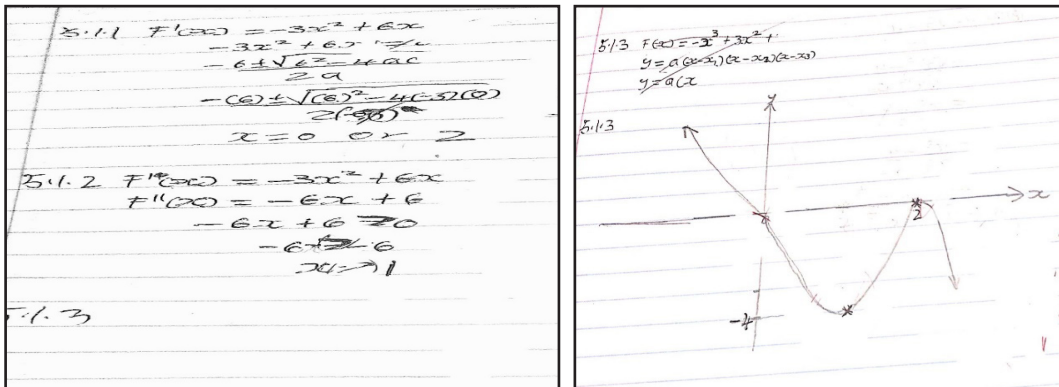 5.1.1 F'(x) = -3x² + 6x
-3x² + 6x
-6 ± √6² - 4ac
2a
-(6) ± √(6)² - 4(-3)(0)
x = 0 or 2
5.1.2 (x) = -3x² + 6x
F''(x) = -6x + 6
-6x + 6 0
1
5.1.3
5.1.3 F(x) = -x³ + 3x² +
y = a(x-x₁)(x-x₂)(x-x₃)
y = a(x
5.1.3
y
x
2
-4